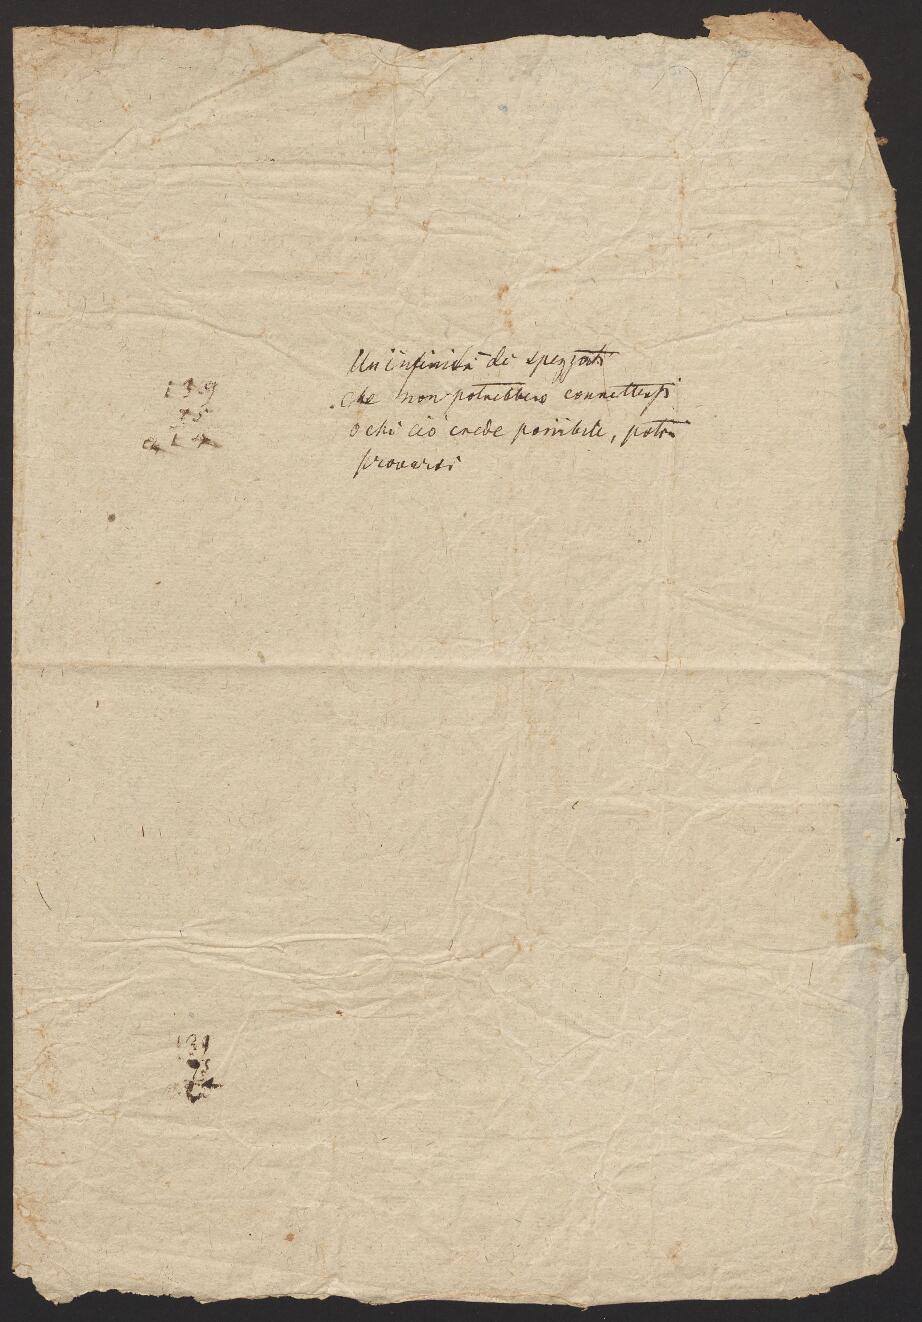 Un'infinità di spezzati
che non potrebbero connettersi
o chi ciò crede possibile, potrà
provarsi
139
75
214
139
75